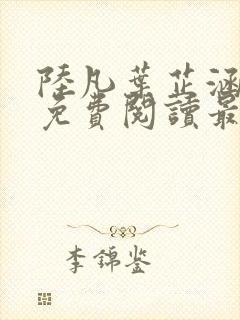 陸凡葉芷涵
免費閱讀最
李錦鉴